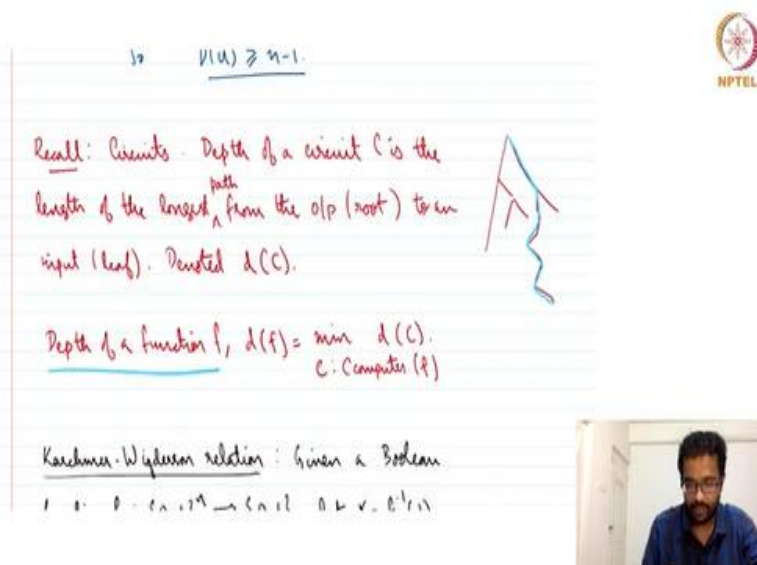 so D(U) ≥ n-1.
NPTEL
Recall: Circuits. Depth of a circuit C is the
length of the longest path from the o/p (root) to an
input (leaf). Denoted d(C).
Depth of a function f, d(f) = min d(C).
C: C computes (f)
Karchmer-Wigderson relation: Given a Boolean